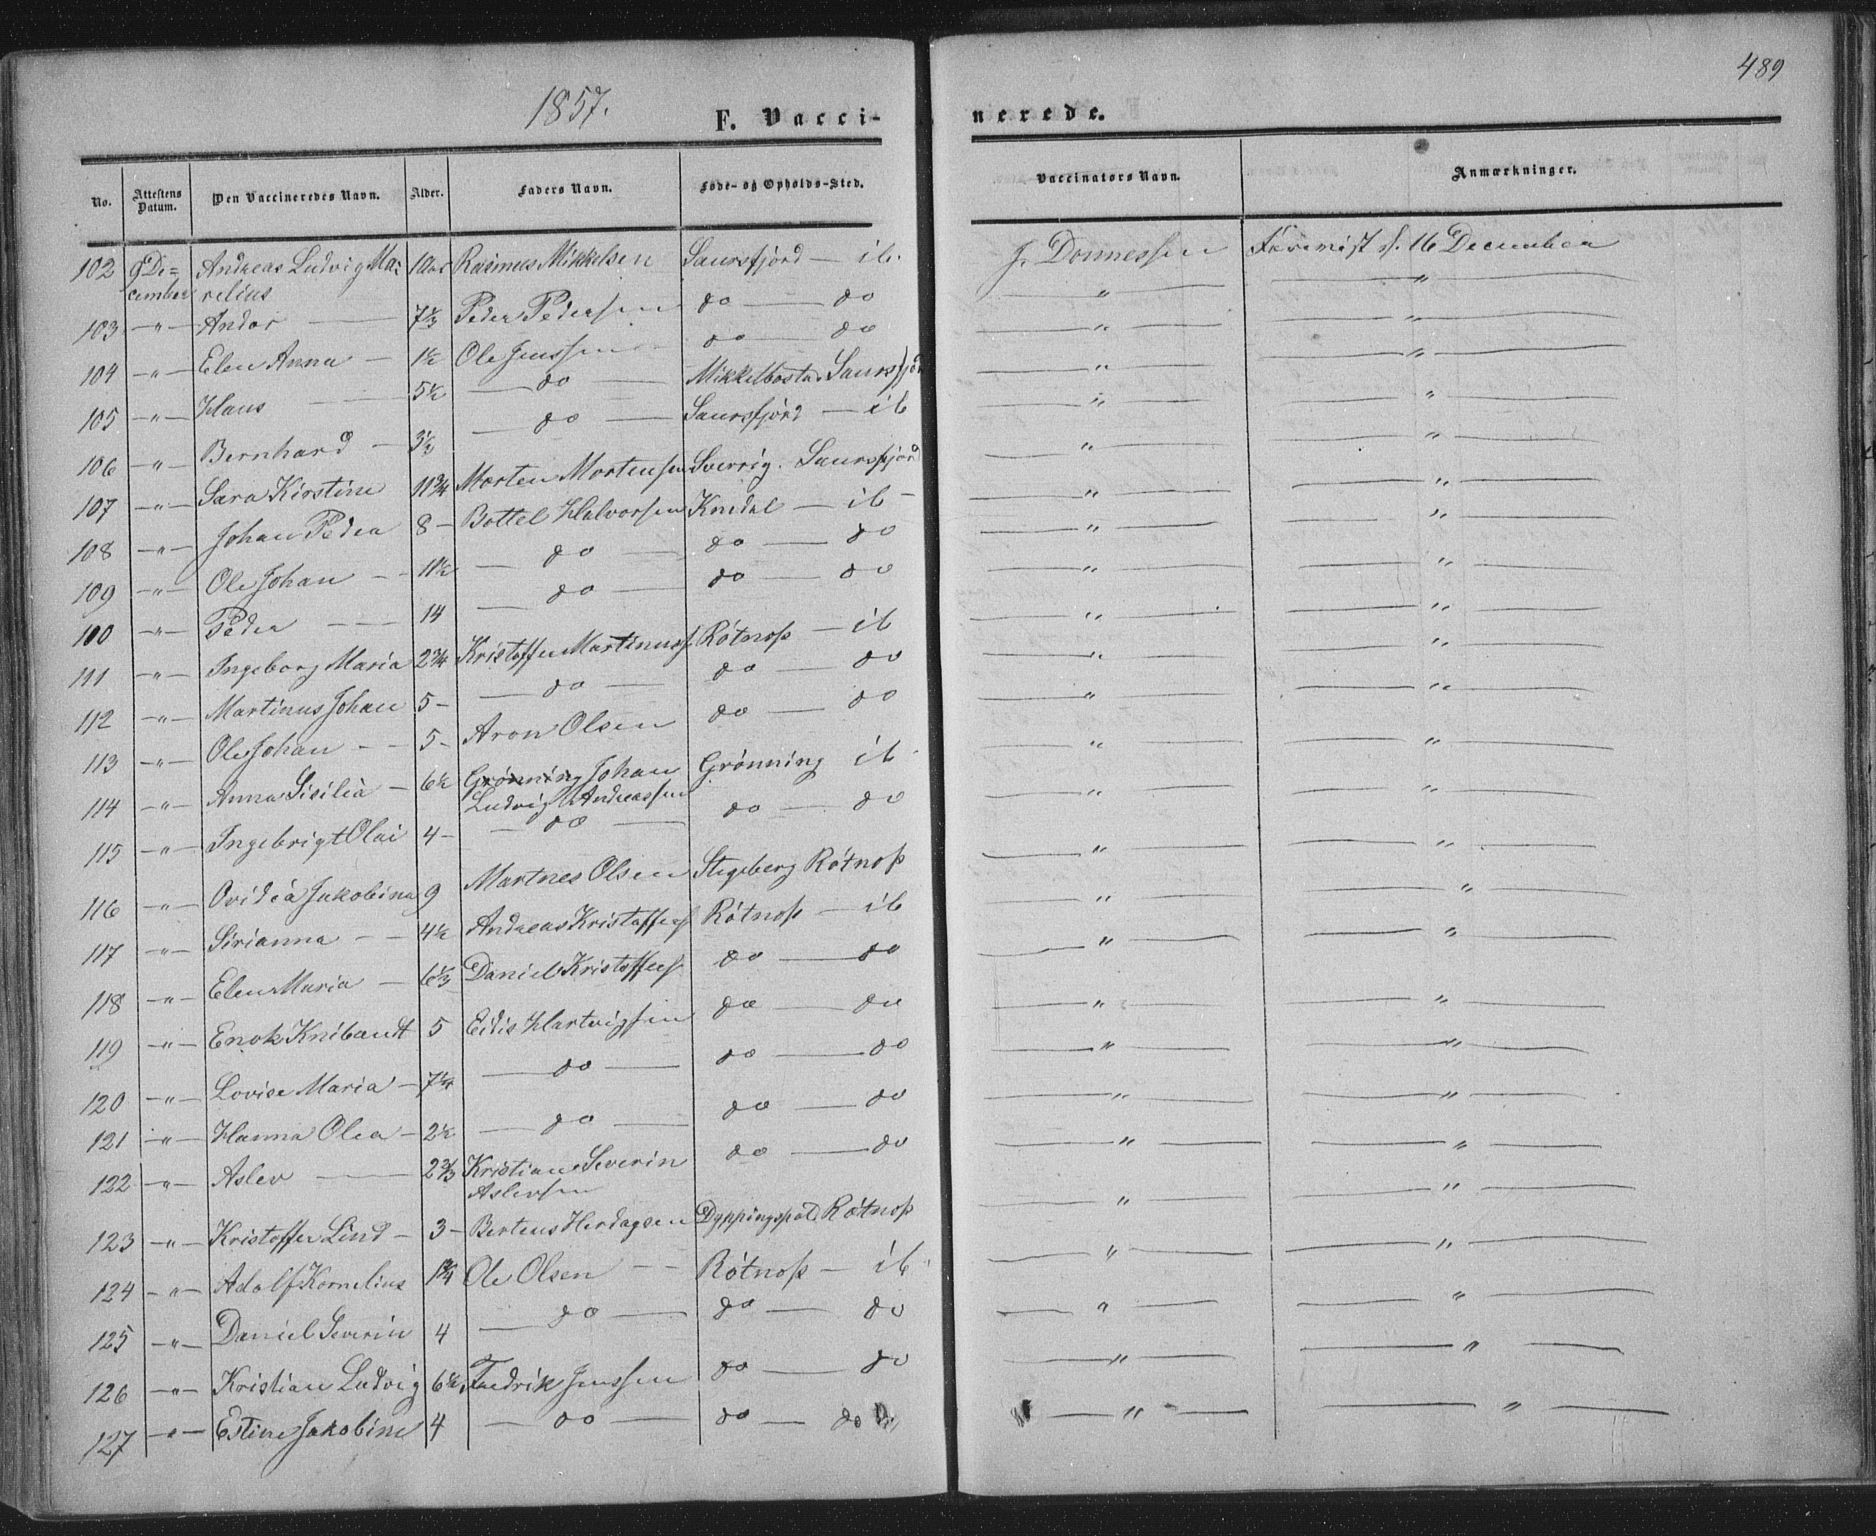 489
1857.
F. Vacci-
nerede.
No. Attestens Datum. Den Vaccineredes Navn. Alder. Faders Navn. Føde- og Opholds-Sted. Vaccinators Navn. Anmærkninger.
102 9 De= Andreas Ludvig Ma= Rasmus Mikkelsen Saursfjord — ib. J. Donnessen 16 December
cember relius
103 —"— Andor — 7⅓ Peder Pedersen do — do — " — — " —
104 —"— Elen Anna — 1½ Ole Jenssen do — do — " — — " —
105 —"— Hans — 5½ — do — Mikkelbostad Saursfjord — " — — " —
106 —"— Bernhard — 3½ — do — Saursfjord — ib — " — — " —
107 —"— Sara Kirstine 11¾ Morten Mortensen Sverrig. Saursfjord — " — — " —
108 —"— Johan Peder 8 — Bottel Halvorsen Knedal — ib — — " — — " —
109 —"— Ole Johan — 11½ — do — do — do — " — — " —
110 —"— Peder — 14 — do — do — do — " — — " —
111 —"— Ingeborg Maria 2¾ Kristoffer Martinuss. Røtnoss — ib — " — — " —
112 —"— Martinus Johan 5 — — do — do — do — " — — " —
113 —"— Ole Johan — 5 — Aron Olsen do — do — " — — " —
114 —"— Anna Sisilia — 6½ Grønning Johan Grønning ib — " — — " —
Ludvig Andreassen
115 —"— Ingebrigt Olai 4 — — do — do — do — " — — " —
116 —"— Ovidia Jakobina 9 Martnes Olsen Stegeberg Røtnoss — " — — " —
117 —"— Sirianna — 4½ Andreas Kristoffers. Røtnoss — ib — " — — " —
118 —"— Elen Maria — 6⅓ Daniel Kristoffers. do — do — " — — " —
119 —"— Enok Knibandt 5 Edis Hartvigsen do — do — " — — " —
120 —"— Lovise Maria — 7¼ — do — do — do — " — — " —
121 —"— Hanna Olea — 2½ — do — do — do — " — — " —
122 —"— Aslev — 2⅔ Kristian Severin do — do — " — — " —
Aslevsen
123 —"— Kristoffer Lind — 3 — Berteus Herdagsen Røtnoss — " — — " —
124 —"— Adolf Kornelius 1¾ Ole Olsen — Røtnoss — ib. — " — — " —
125 —"— Daniel Severin 4 — do — do — do — " — — " —
126 —"— Kristian Ludvig 6½ Fredrik Jenssen do — do — " — — " —
127 —"— Estine Jakobine 4 — do — do — do — " — — " —